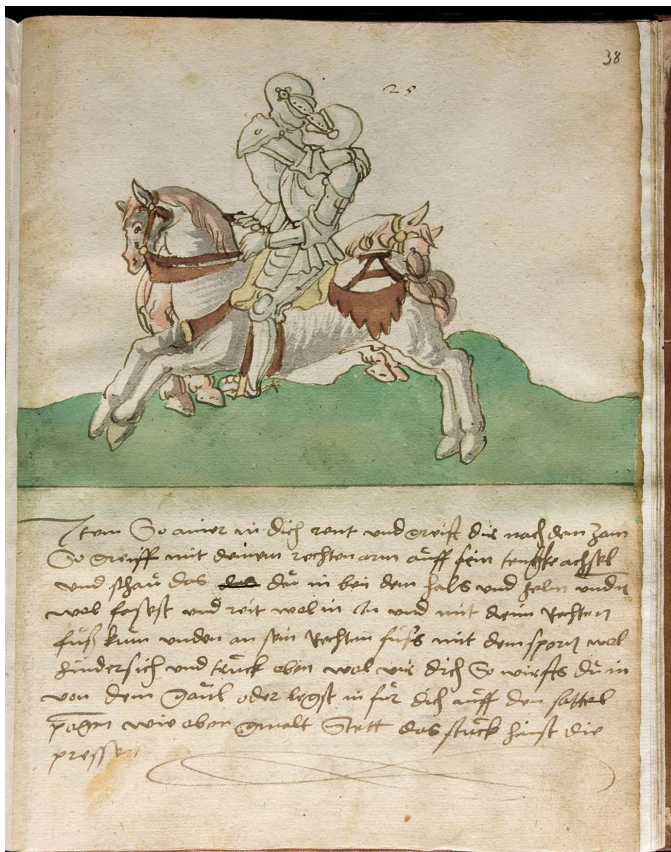 38
25
Item So ainer in dich rent und greift dir nach dem Zam
So greiff mit deinem rechten arm auff sein achsel
und schau das du in bei dem hals und helm unden
wol fasest und reit wol in In und mit deim Rechten
fuß kum unden an sein Rechten fuß mit dem sporn wol
hindersich und truck oben wol uir dich So wirfts du in
von dem Gaul oder legst in für dich auff den sattel
pogen wie oben gmalt Stett das stuck haist die
pressen